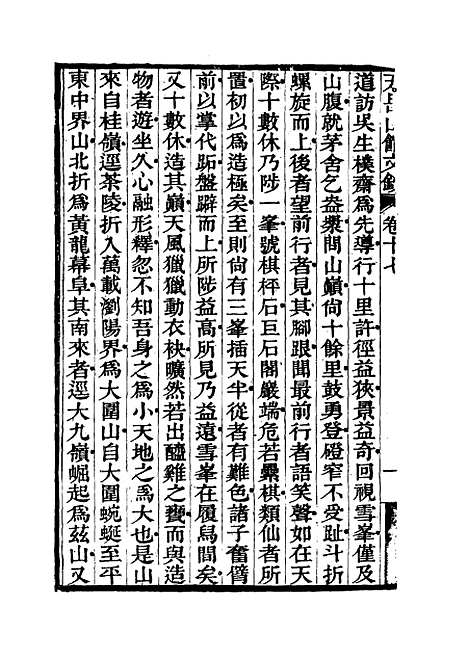 天岳山館文鈔 卷十七 一
道訪吳生樸齋爲先導行十里許徑益狹景益奇回視雪峯僅及
山腹就茅舍乞盎漿問山巔尙十餘里鼓勇登磴窄不受趾斗折
螺旋而上後者望前行者見其腳跟聞最前行者語笑聲如在天
際十數休乃陟一峯號棋枰石巨石闇巖端危若纍棋類仙者所
置初以爲造極矣至則尙有三峯插天半從者有難色諸子奮臂
前以掌代跖盤辟而上所陟益高所見乃益遠雪峯在履舄間矣
又十數休造其巔天風獵獵動衣袂曠然若出醯雞之甕而與造
物者遊坐久心融形釋忽不知吾身之爲小天地之爲大也是山
來自桂嶺逕茶陵折入萬載瀏陽界爲大圍山自大圍蜿蜒至平
東中界山北折爲黃龍幕阜其南來者逕大九嶺崛起爲茲山又